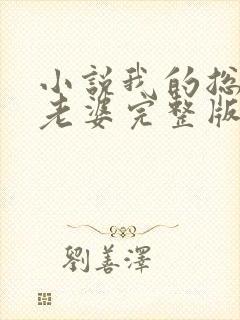 小説我的总
老婆完整版
劉善澤